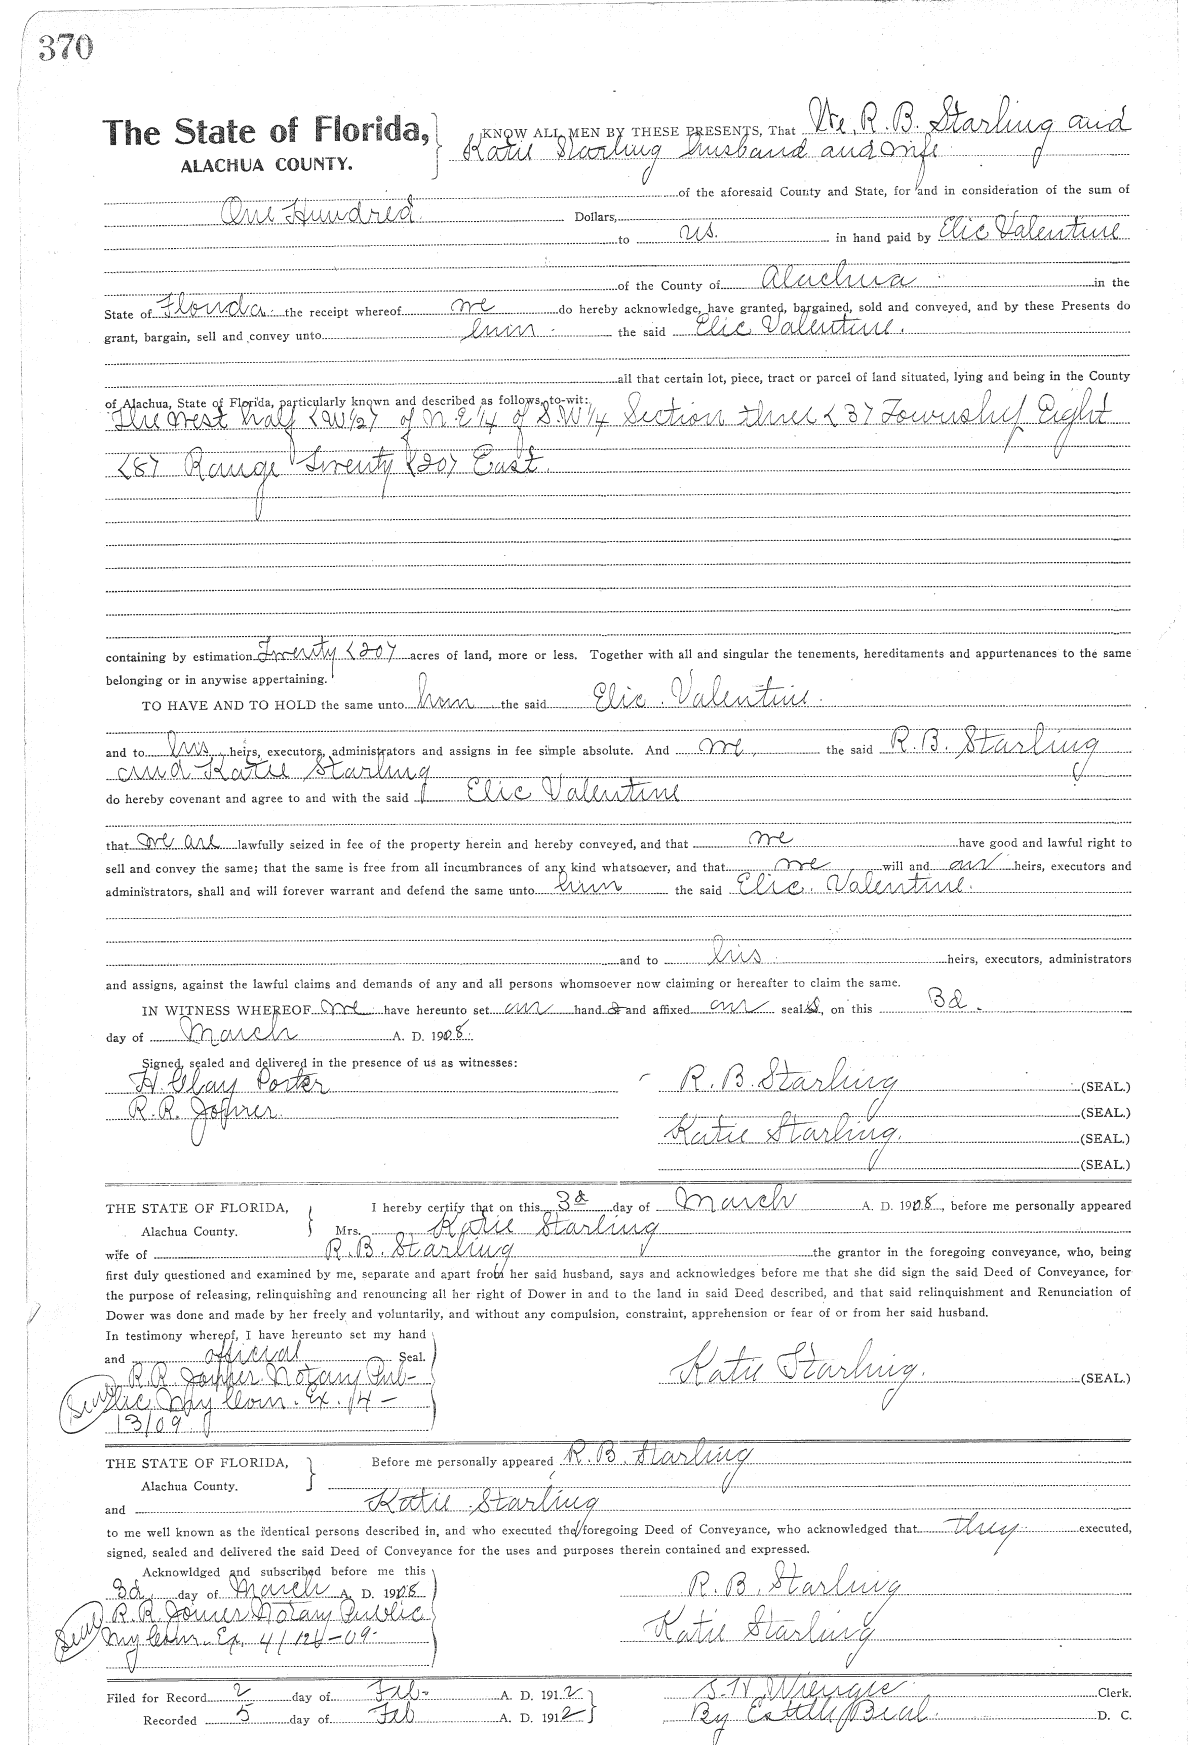 370
The State of Florida, KNOW ALL MEN BY THESE PRESENTS, That We, R. B. Starling and
ALACHUA COUNTY. Katie Starling husband and wife
of the aforesaid County and State, for and in consideration of the sum of
One Hundred Dollars,
to us. in hand paid by Elic Valentine
of the County of Alachua in the
State of Florida. the receipt whereof we do hereby acknowledge, have granted, bargained, sold and conveyed, and by these Presents do
grant, bargain, sell and convey unto him the said Elic Valentine.
all that certain lot, piece, tract or parcel of land situated, lying and being in the County
of Alachua, State of Florida, particularly known and described as follows, to-wit:
The West half <W1/2> of N.E1/4 of S.W1/4 Section three <3> Township Eight
<8> Range Twenty <20> East.
containing by estimation Twenty <20> acres of land, more or less. Together with all and singular the tenements, hereditaments and appurtenances to the same
belonging or in anywise appertaining.
TO HAVE AND TO HOLD the same unto him the said Elic. Valentine.
and to his heirs, executors, administrators and assigns in fee simple absolute. And we, the said R. B. Starling
and Katie Starling
do hereby covenant and agree to and with the said Elic Valentine
that we are lawfully seized in fee of the property herein and hereby conveyed, and that we have good and lawful right to
sell and convey the same; that the same is free from all incumbrances of any kind whatsoever, and that we will and our heirs, executors and
administrators, shall and will forever warrant and defend the same unto him the said Elic. Valentine.
and to his heirs, executors, administrators
and assigns, against the lawful claims and demands of any and all persons whomsoever now claiming or hereafter to claim the same.
IN WITNESS WHEREOF we have hereunto set our hand s and affixed our seal s, on this 3d.
day of March A. D. 1908.
Signed, sealed and delivered in the presence of us as witnesses:
H. Clay Porter R. B. Starling (SEAL.)
R. R. (SEAL.)
Katie Starling. (SEAL.)
(SEAL.)
THE STATE OF FLORIDA, I hereby certify that on this 3d day of March A. D. 1908, before me personally appeared
Alachua County. Mrs. Katie Starling
wife of R. B. Starling the grantor in the foregoing conveyance, who, being
first duly questioned and examined by me, separate and apart from her said husband, says and acknowledges before me that she did sign the said Deed of Conveyance, for
the purpose of releasing, relinquishing and renouncing all her right of Dower in and to the land in said Deed described, and that said relinquishment and Renunciation of
Dower was done and made by her freely and voluntarily, and without any compulsion, constraint, apprehension or fear of or from her said husband.
In testimony whereof, I have hereunto set my hand
and official Seal.
R. R. Notary Pub- Katie Starling. (SEAL.)
Seal lic. My Com. Ex. /4-
13/09
THE STATE OF FLORIDA, Before me personally appeared R. B. Starling
Alachua County.
and Katie Starling
to me well known as the identical persons described in, and who executed the foregoing Deed of Conveyance, who acknowledged that they executed,
signed, sealed and delivered the said Deed of Conveyance for the uses and purposes therein contained and expressed.
Acknowldged and subscribed before me this
3d, day of March A. D. 1908 R. B. Starling
R. R. Notary Public Katie Starling
Seal My Com. Ex. 4/
Filed for Record 2 day of Feb- A. D. 1912 Clerk.
Recorded 5 day of Feb A. D. 1912 By Estelle Beal. D. C.